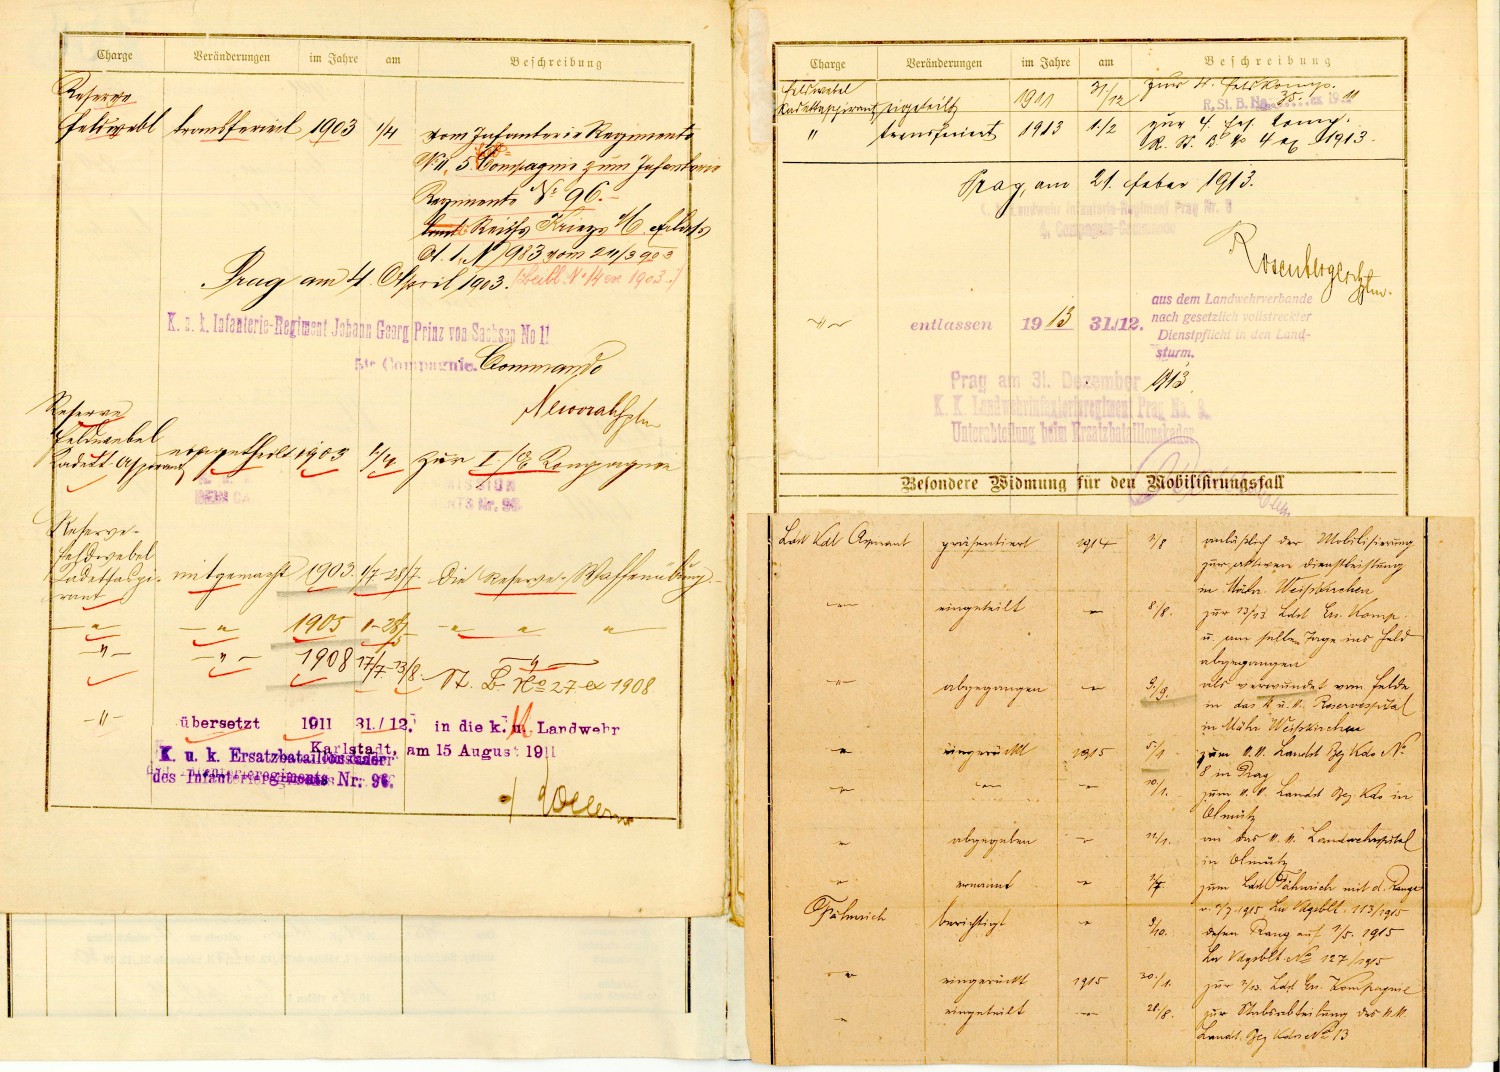 Charge Veränderungen im Jahre am Beschreibung
Reserve
Feldwebl transferiert 1903 1/4 vom Infanterie Regimente
N 11, 5. Compagnie zum Infanterie
Regimente № 96.
Reichs Kriegs M. Erlass
Abt. 1, N 983 vom 24/3 903
Prag am 4. April 1903.
K. u. k. Infanterie-Regiment Johann Georg Prinz von Sachsen No 11
5te Compagnie. Commando
Reserve
Feldwebel
Kadett-Aspirant 1903 zur I/E Kompagnie
Reserve-
Feldwebel
Kadettaspi-
rant mitgemacht 1903 1/7-28/7. die Reserve-Waffenübung
—„— —„— 1905 1-28/5 „ „ „
—„— —„— 1908 17/7-13/8. —„—
St. B. No 27 ex 1908
—„— übersetzt 1911 31./12. in die k. u. Landwehr
Karlstadt, am 15 August 1911
K. u. k. Ersatzbataillonskader
des Infanterieregiments Nr. 96.
Charge Veränderungen im Jahre am Beschreibung
Feldwebel
Kadettaspirant eingeteilt 1911 31/12 zur 4. Feldkomp.
R. St. B. No. 35 ex 1911
„ transferiert 1913 1./2 zur 4. Feldkomp.
R. St. B. No 4 ex 1913.
Prag, am 21. Feber 1913.
K. k. Landwehr Infanterie-Regiment Prag Nr. 8
4. Compagnie-Commando
Rosenberger Hptm.
—„— entlassen 1913 31./12. aus dem Landwehrverbande
nach gesetzlich vollstreckter
Dienstpflicht in den Land-
sturm.
Prag am 31. Dezember 1913
K. K. Landwehrinfanterieregiment Prag No. 8.
Unterabteilung beim Ersatzbataillonskader
Besondere Widmung für den Mobilisirungsfall
Ldst Kdt Aspirant präsentiert 1914 1/8 anläßlich der Mobilisierung
zur aktiven Dienstleistung
in Mähr. Weißkirchen
—„— eingeteilt —„— 8./8. zur 12/13 Ldst Ers. Komp.
u. am selben Tage ins Feld
abgegangen
—„— abgegangen —„— 9/9. als verwundet vom Felde
in das k. u. k. Reservespital
in Mähr Weißkirchen
„ eingerückt 1915 5/1 zum k. k. Landst Bez Kdo №
8 in Prag
„ —„— „ 10/1. zum k. k. Landst Bez. Kdo in
Olmütz
„ abgegeben „ 11/1. an das k. k. Landwehrspital
in Olmütz
„ ernannt „ 1/7. zum Ldst Fähnrich mit d. Range
v. 1/7 1915, Lw Vdgsblt. 113/1915
Fähnrich berichtigt „ 9/10. dessen Rang auf 1/5. 1915
Lw Vdgsblt № 127/1915
„ eingerückt 1915 30./1. zur 1/13. Ldst Ers. Kompagnie
„ eingeteilt „ 28/8. zur Stabsabteilung des k. k.
Landst. Bez Kdos № 13